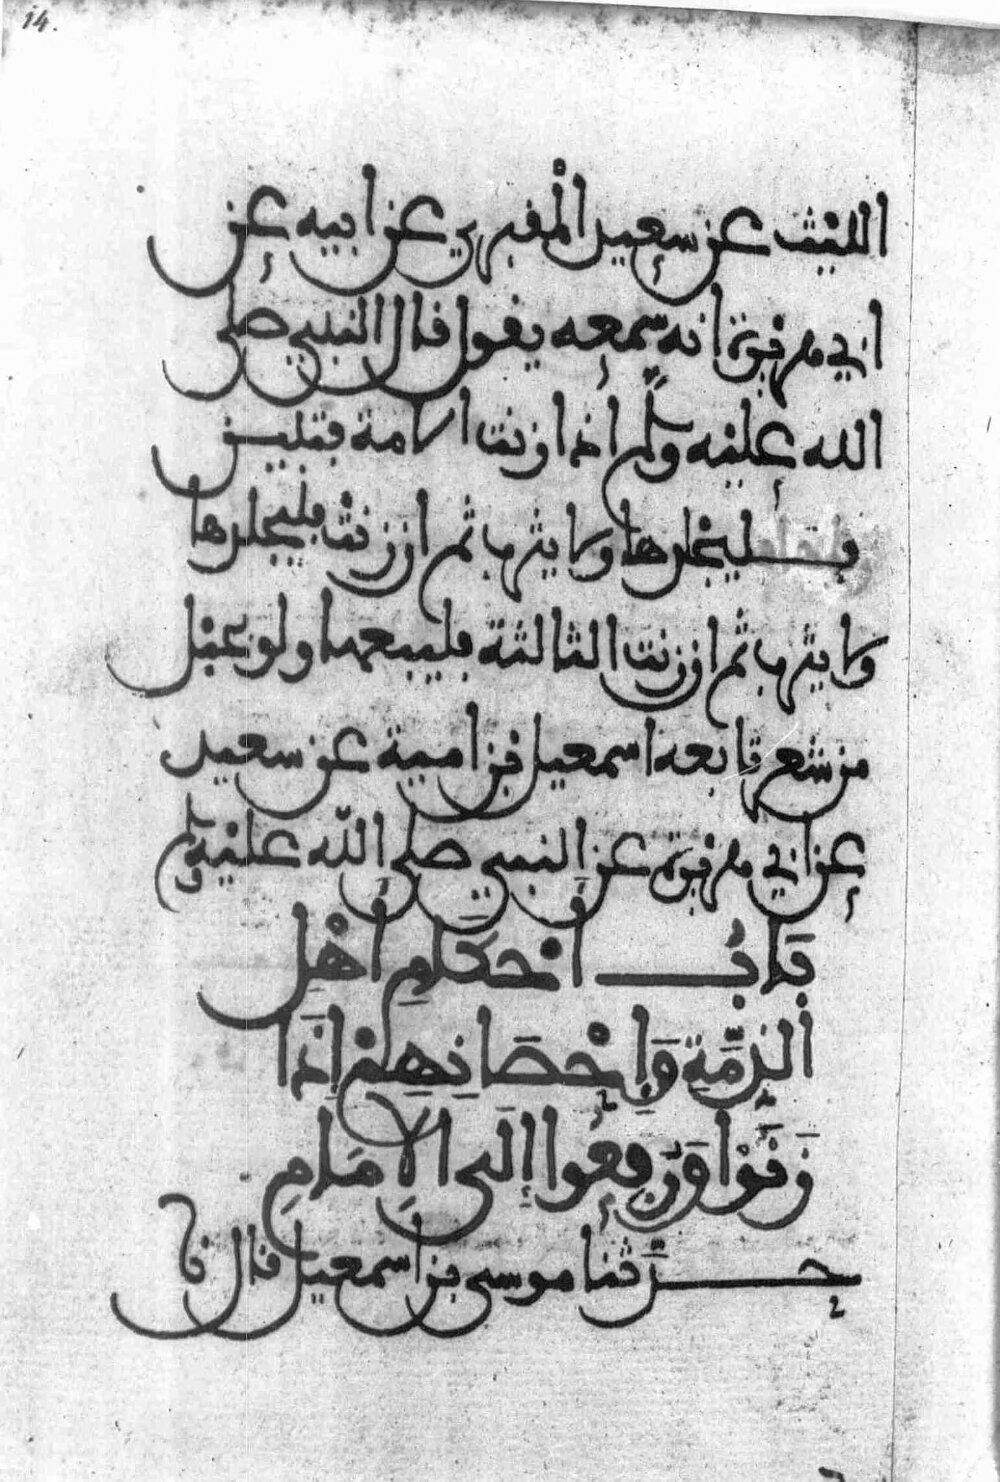 14.
الليث عن سعيد المقبري عن ابيه عن
ابي هريرة انه سمعه يقول قال النبي صلى
الله عليه وسلم اذا زنت الامة فتبين
فليجلدها ولا يثرب ثم ان زنت فليجلدها
ولا يثرب ثم ان زنت الثالثة فليبعها ولو بحبل
من شعر تابعه اسمعيل بن امية عن سعيد
عن ابي هريرة عن النبي صلى الله عليه وسلم
بَابُ أَحْكَامِ أَهْلِ
الذِّمَّةِ وَإِحْصَانِهِمْ إِذَا
زَنَوْا وَرُفِعُوا إِلَى الْإِمَامِ
حدّثنا موسى بن اسمعيل قال نا